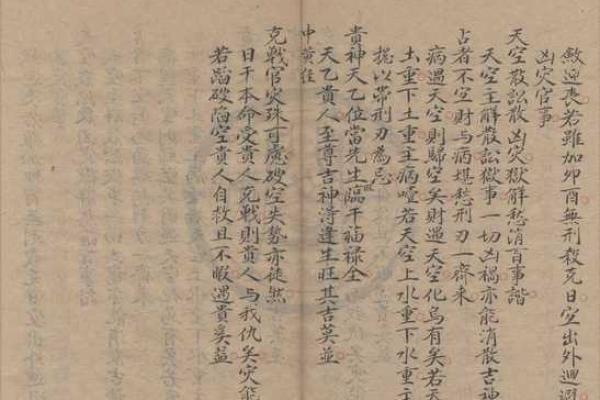 敫迎丧若雖加卯酉無刑殺克日空出外迴避
凶灾官事
天空散訟散凶灾獄解愁消百事諧
天空主解散訟獄事一切凶禍亦能消散吉神
占者不空財与病堪愁刑刃一齊来
病遇天空則歸空矣財遇天空化烏有矣若天
土重下土重主病噎若天空上水重下水重主
提以帶刑刃為忌
貴神天乙位當先生臨干福禄全
天乙貴人至尊吉神淂逢生旺其吉莫並
中黄佳
克戰官灾殊可慮破空失勢亦徒然
日干本命受貴人克戰則貴人与我仇矣灾能
若蹈破陷空貴人自救且不暇遇貴奚益